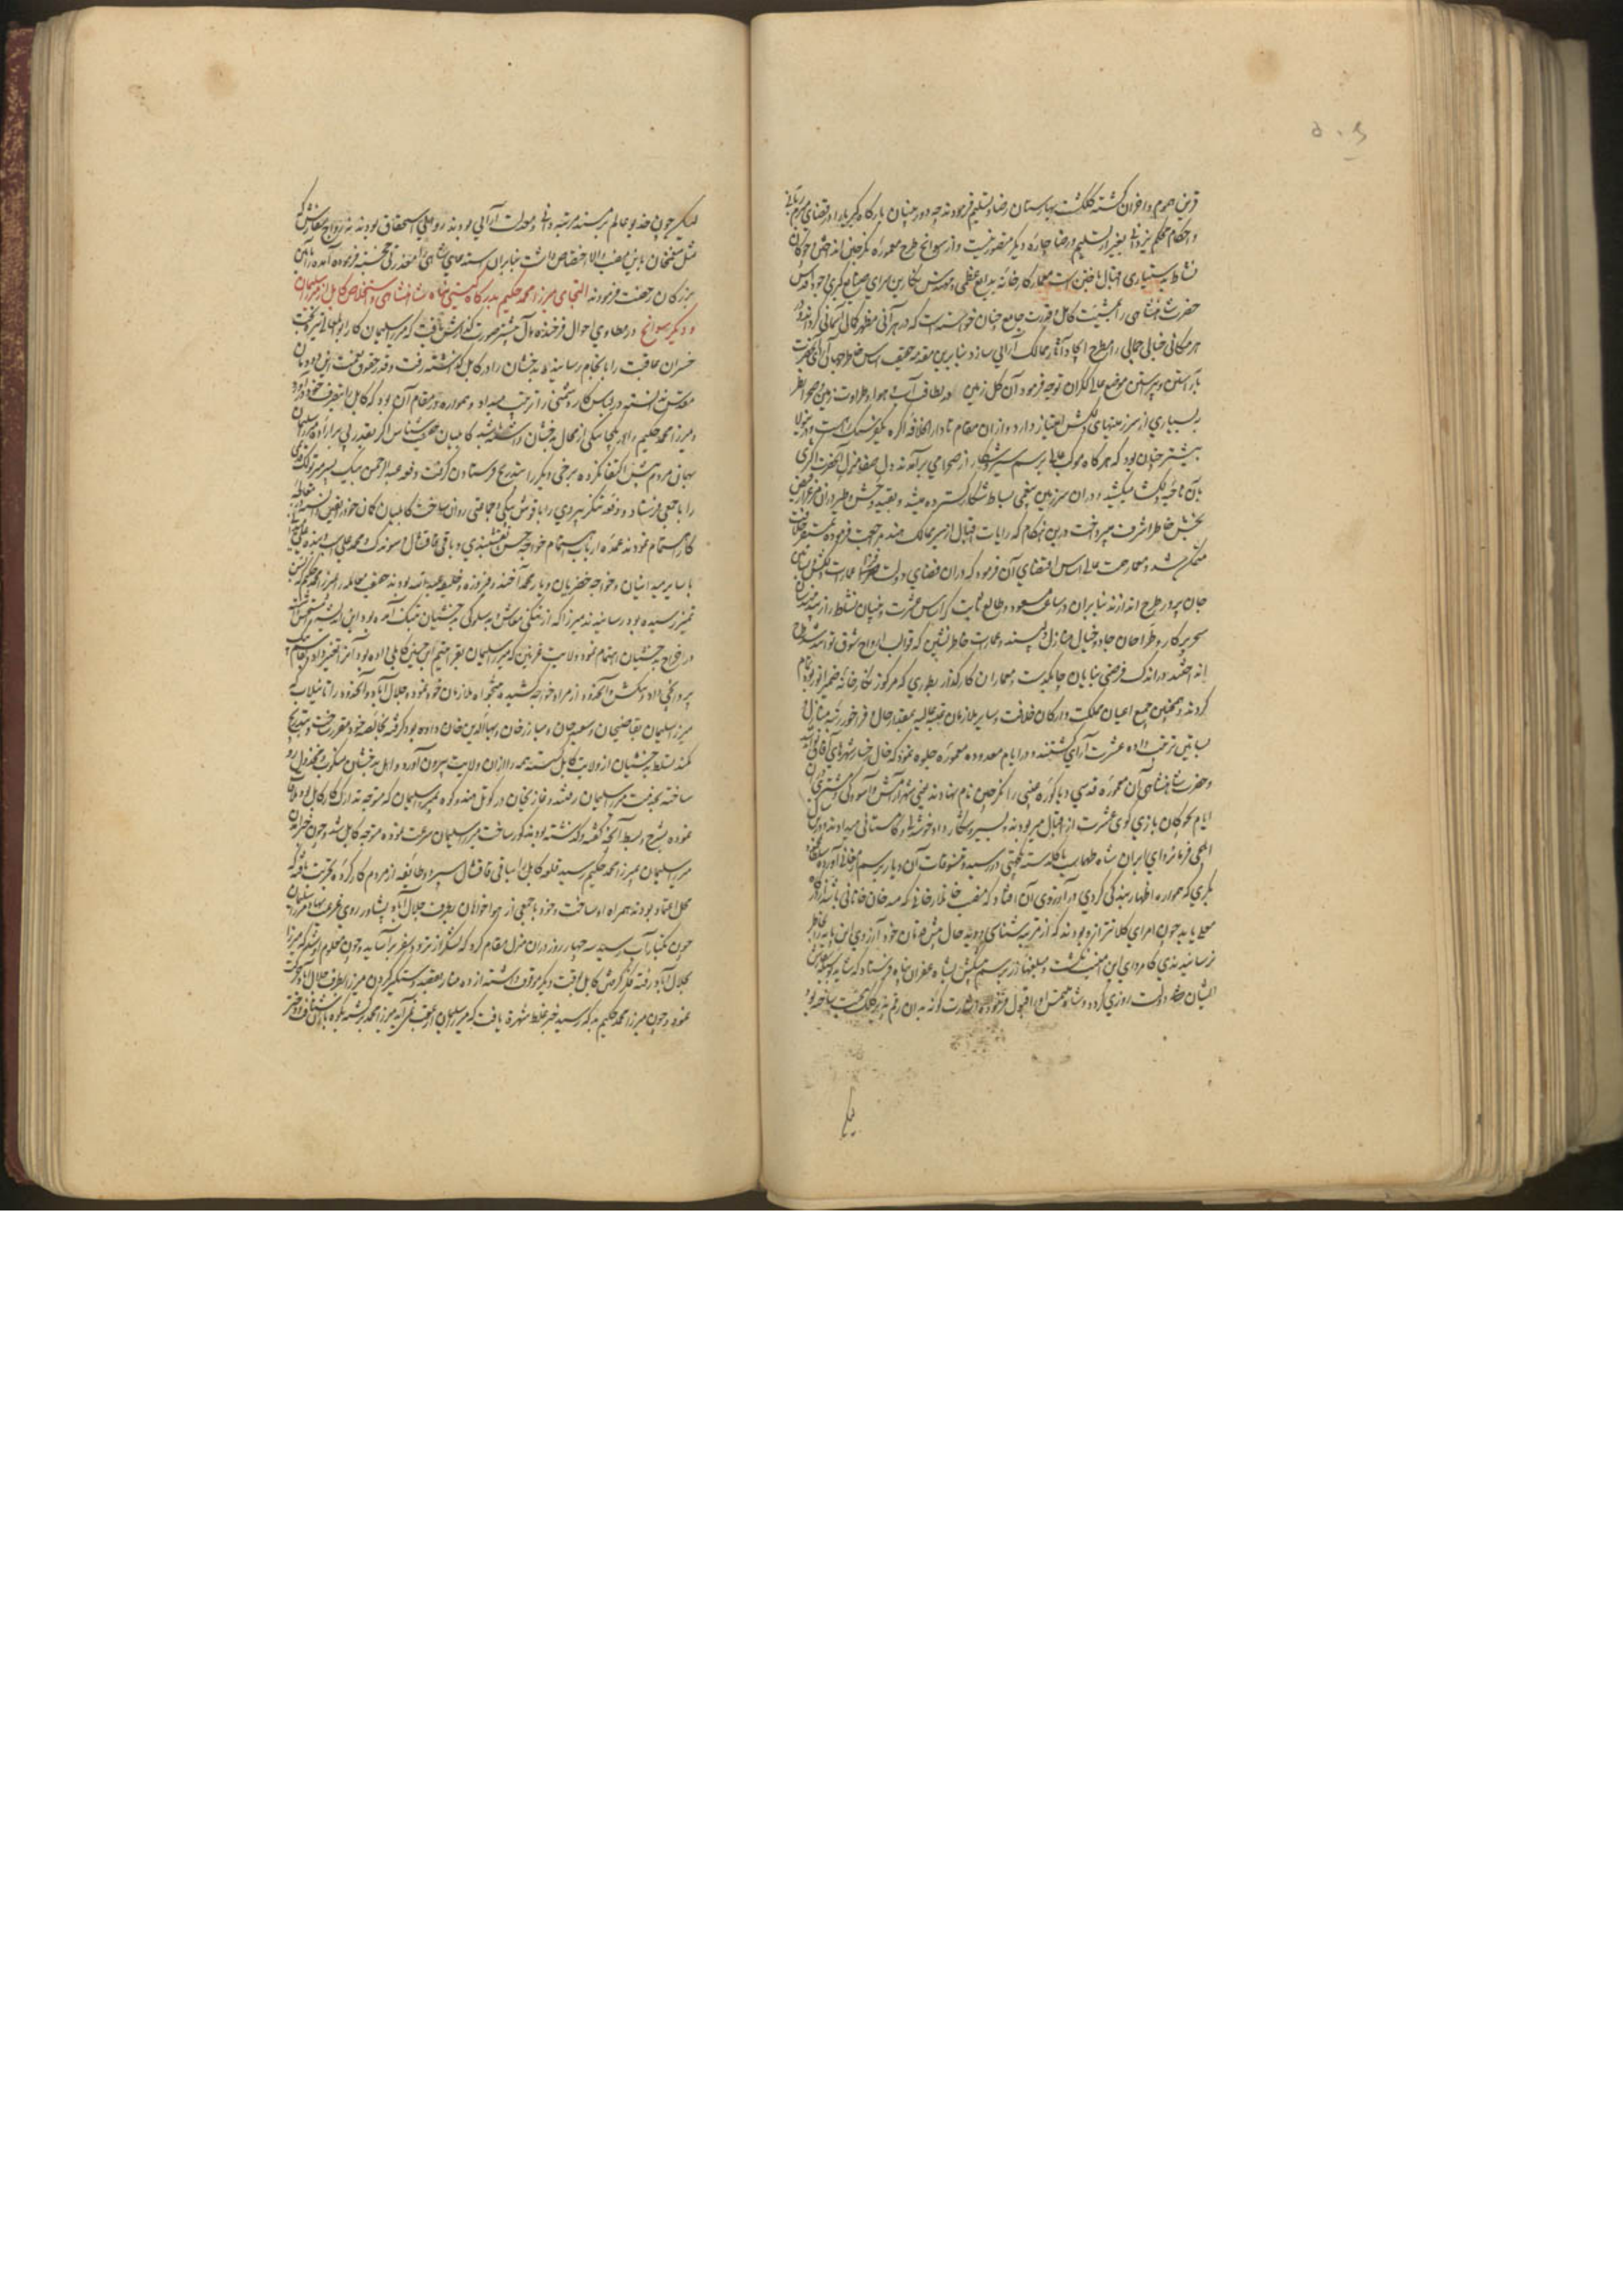 قرین هموم و احزان گشته گلگشت بهارستان رضا و تسلیم فرمودند چه دوربینان بارگاه کبریا را در قضای مبرم ربانی
و احکام محکم یزدانی بغیر از تسلیم و رضا چاره دیگر متصور نیست و از سوانح طرح معموره نگرچین انداختن و چوگان
نشاط بدستیاری اقبال باختن است معمار کارخانه بدایع عظمی و مهندس نگارین سرای صنایع کبری وجود اقدس
حضرت شاهنشاهی را بمشیت کامل و قدرت جامع چنان خواسته است که در هر آنی مظهر کمال آسمانی گردانند و در
هر مکانی خیالی جمالی را مطرح ایجاد و آثار ممالک آرایی سازد بنابرین مقدمه حقیقت اساس خاطر جهان آرای آنحضرت
بآراستن و پیراستن موضع ککرالی توجه فرمود آن گل زمین در لطافت آب و هوا و طراوت زمین و صحرا نظر
به بسیاری از سرزمینهای دلکش امتیاز دارد و از ان مقام تا دار الخلافه آگره یکفرسنگ راهست و
بیشتر چنان بود که هر گاه موکب عالی برسم سیر و شکار از صحرا می برآمدند دل صفا منزل آنحضرت اکثری
بآن ناحیه گلگشت میکشید و در ان سرزمین بساط شکار گسترده میشد و بقید وحش و طیر در ان مرغزار فیض
بخش خاطر اشرف می پرداخت درین هنگام که رایات اقبال از سیر ممالک مندو مراجعت فرموده بمستقر خلافت
متمکن شد و معمار همت عالی اساس اقتضای آن فرمود که در ان فضای دولت افزا عمارات دلکش و بساتین
جان پرور طرح اندازند بنابران در ساعت مسعود و طالع ثابت که اساس عشرت و بنیان نشاط را
سحر پرکار و طراحان جادو خیال منازل دلپسند و عمارات خاطر نشین که قوالب ارواح شوق تواند شد طرح
انداختند در اندک فرصتی بنایان چابکدست و معماران کارگذار بطوری که مرکوز نگارخانه ضمیر انور بود تمام
کردند و همچنین جمیع اعیان مملکت و ارکان خلافت و سایر ملازمان عتبه عالیه بمقدار حال و فراخور رتبه منازل و
بساتین ترتیب داده عشرت آرای گشتند و در ایام معدوده معموره جلوه نمود که خال رخسار شهرهای آفاق تواند شد
و حضرت شاهنشاهی آن معموره قدسی و باکوره غیبی را نگرچین نام نهادند یعنی شهر آرامش و آسودگی و بیشتری دران
ایام بچوگان بازی گوی عشرت از اقبال میربودند و بسیر و شکار داد خوشدلی و کامستانی میدادند و درین
ایلچی فرمانروای ایران شاه طهماسب با گلدسته یکجهتی در رسید و تنسوقات آن دیار برسم ارمغانی آورد و سلطان محمود
بکری که همواره اظهار بندگی کردی در آرزوی آن افتاد که منصب خانخانانی که سه خان خانانی باشد از درگاه
معلی یابد چون امرای کلانتر ازو بودند که از مرتبه شناسی و دید حال خویش زبان خود آرزوی این پایه را بخاطر
نرسانیده بودند کامروای این امنیت نگشت و مبلغها زر برسم پیشکش بشاه غفران پناه فرستاد که شاید بوسیله سفارش
ایشان این دولت روزی گردد و شاه ملتمس او را قبول فرموده در مفاوضت گونه بدان رقم پذیر کلک محبت ساخته بود
لیکن
لیکن چون خدیو عالم بر مسند مرتبه دانی و معدلت آرایی بودند روا علی استحقاق بودند نه رواج سفارش که
مثل منعم خان باین منصب والا اختصاص داشت بنابران استدعای شاهی را معذرتی خجسته فرموده آمده را باین
بزرگان رخصت فرمودند التجای میرزا محمد حکیم بدرگاه گیتی پناه شاهنشاهی و استخلاص کابل از میرزا سلیمان
و دیگر سوانح در مطاوی احوال فرخنده مآل پیشتر صورت گذارش یافت که میرزا سلیمان کار ابوالمعالی تیره بخت
خسران عاقبت را بانجام رسانیده بدخشان را در کابل گذاشته رفت و قدر حقوق نعمت این دودمان
مقدس ندانسته در لباس کار دشمنی را ترتیب میداد و همواره در مقام آن بود که کابل را بتصرف خود درآورد
و میرزا محمد حکیم را در یکجا یکی از محال بدخشان داشته باشد کابلیان حقیقت شناس اگر بقدر پی برارادهٔ میرزا سلیمان
بهمان مردم پیش اکتفا نکرده برخی دیگر را بتدریج فرستادن گرفت دفعه عبدالرحمن بیک پسر میر تولک قدیمی
را با جمعی فرستاد و دفعه تنکری بردی را با قوش بیگی و جماعتی روان ساخت کابلیان گمان خود را یقین دانسته
کار اهتمام نمودند عمده ارباب اهتمام خواجه حسن نقشبندی و باقی قاقشال و سیوندوک و محمد علی اسپ بنده علی
با سایر میدانیان و خواجه خضریان و یار محمد آخوند و فیروزه و خلیفه عبدالله بودند حقیقت معامله را بمیرزا محمد حکیم که بسن
تمیز رسیده بود رسانیدند میرزا که از تنگی معاش و بدسلوکی بدخشیان بتنگ آمده بود این اندیشه را مستحسن دانسته
در اخراج بدخشیان اهتمام نمود ولایت غزنین که میرزا سلیمان بقرا یتیم داده بود آنرا تغییر داد و بقاسم بیک
پروانچی داد و بنکش و آنحدود از مراد خواجه کشیده ملازمان خود نموده و جلال آباد و آنحدود را تا نیلاب که
میرزا سلیمان بقاضی خان و سعید خان و مبارزخان و بهاءالدین خان داده بود گرفته بجماعه خود مقرر ساخت و بتدریج
کمند تسلط بدخشیان از ولایت کابل گسسته همه را از ان ولایت بیرون آورد و اهل بدخشان منکوب و مخذول رو
ساخته بخدمت میرزا سلیمان رفتند و غازیخان در کوتل هندوکوه بمیرزا سلیمان که متوجه تدارک کار کابل بود ملاقات
نموده بشرح و بسط آنچه گفته و گذشته بود مذکور ساخت میرزا سلیمان سرعت نموده متوجه کابل شد و چون خبر آمدن
میرزا سلیمان بمیرزا محمد حکیم رسید قلعه کابل را بباقی قاقشال سپرده و طایفه از مردم کارکرده تجربت یافته که
محل اعتماد بودند همراه او ساخت و خود با جمعی از هواخواهان بطرف جلال آباد و پشاور روی عزیمت نهاد و میرزا سلیمان
چون بکنار آب رسید سه چهار روز در ان منزل مقام کرد که لشکر از تردد سفر برآساید و چون معلوم او شد که میرزا
بجلال آباد رفته فکر گرفتن کابل بوقت دیگر موقوف داشته اراده متعاقبه و دستگیر کردن میرزا بطرف جلال آباد حرکت
نموده و چون میرزا محمد حکیم به رسید خبر غلط شهرت یافت که میرزا سلیمان از عقب نمی آید میرزا محمد برگشته بکوه